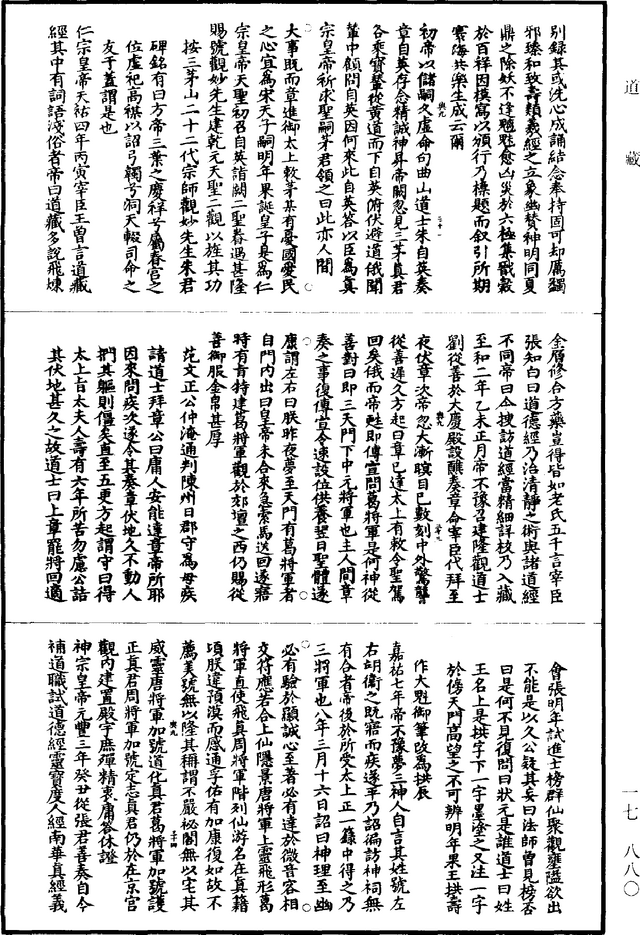 道藏
別録其或洗心成誦結念奉持固可却厲蠲
邪臻和致壽類羲經之立象幽贊神明同夏
鼎之除妖不逢魑魅愈凶災於六極集戩穀
於百祥因摸寫以頒行乃標題而叙引所期
寰海共樂生成云爾
初帝以儲嗣久虚命句曲山道士朱自英奏
章自英存念精誠神昇帝闕忽見三茅真君
各乘寶輦從黄道而下自英俯伏避道俄聞
輦中顧問自英因何來此自英荅以臣爲真
宗皇帝祈求聖嗣茅君領之曰此亦人間
大事既而章進御太上敕茅某有憂國愛民
之心宜爲宋天子嗣明年果誕皇子是爲仁
宗皇帝天聖初召自英詣闕二聖眷遇甚隆
賜號觀妙先生建乾元天聖二觀以旌其功
按三茅山二十二代宗師觀妙先生朱君
碑銘有曰方帝三葉之慶祥兮屬春宫之
位虚祀高禖以詔弓韣兮洞天輟司命之
友于蓋謂是也
仁宗皇帝天祐四年丙寅宰臣王曾言道藏
經其中有詞語淺俗者帝曰道藏多說飛煉
金石修合方藥豈得皆如老氏五千言宰臣
張知白曰道德經乃治清静之術與諸道經
不同帝曰今搜訪道經當精細詳校乃入藏
至和二年乙未正月帝不豫召建隆觀道士
劉從善於大慶殿設醮奏章命宰臣代拜至
夜伏章次帝忽大漸瞑目已數刻中外驚讋
從善遲久方起曰章已達太上有敕令聖駕
回矣俄而帝甦即傳宣問葛將軍是何神從
善對曰即三天門下中元將軍也主人間章
奏之事復傳宣令速設位供養翌日聖體遂
康謂左右曰朕昨夜夢至天門有葛將軍者
自門内出曰皇帝未合來急索馬送回遂寤
特有肯特建葛將軍觀於郊壇之西仍賜從
善御服金帛甚厚
范文正公仲淹通判陳州日郡守爲母疾
請道士拜章公曰庸人安能達章帝所耶
因來問疾次遂令其奏章伏地久不動人
捫其軀則僵矣直至五更方起謂守曰得
太上旨太夫人壽有六年所苦勿慮公詰
其伏地甚久之故道士曰上章罷將回適
會張明年試進士榜群仙聚觀壅隘欲出
不能是以久公疑其妄曰法師曾見榜否
曰是何不見復問曰狀元是誰道士曰姓
王名上是拱字下一字墨塗之又注一字
於傍天門高望之不可辨明年果王拱壽
作大魁御筆改爲拱辰
嘉祐七年帝不豫夢三神人自言其姓號左
右翊衛之既寤而疾遂平乃詔徧訪神祠無
有合者帝後於所受太上正一籙中得之乃
三將軍也八年三月十六日詔曰神理至幽
必有驗於顯誠心至著必有達於微音容相
交符應若合上仙隱景唐將軍上靈飛形葛
將軍直使飛真周將軍階列仙游名在真籍
頃朕違預漠而感通孚佑有加康復如故不
薦美號無以隆其稱謂不嚴祕閣無以宅其
威靈唐將軍加號道化真君葛將軍加號護
正真君周將軍加號定志真君仍於在京宫
觀内建置殿宇庶煇精衷庸荅休證
神宗皇帝元豐三年癸丑從張君善奏自今
補道職試道德經靈寶度人經南華真經義
一七 八八〇